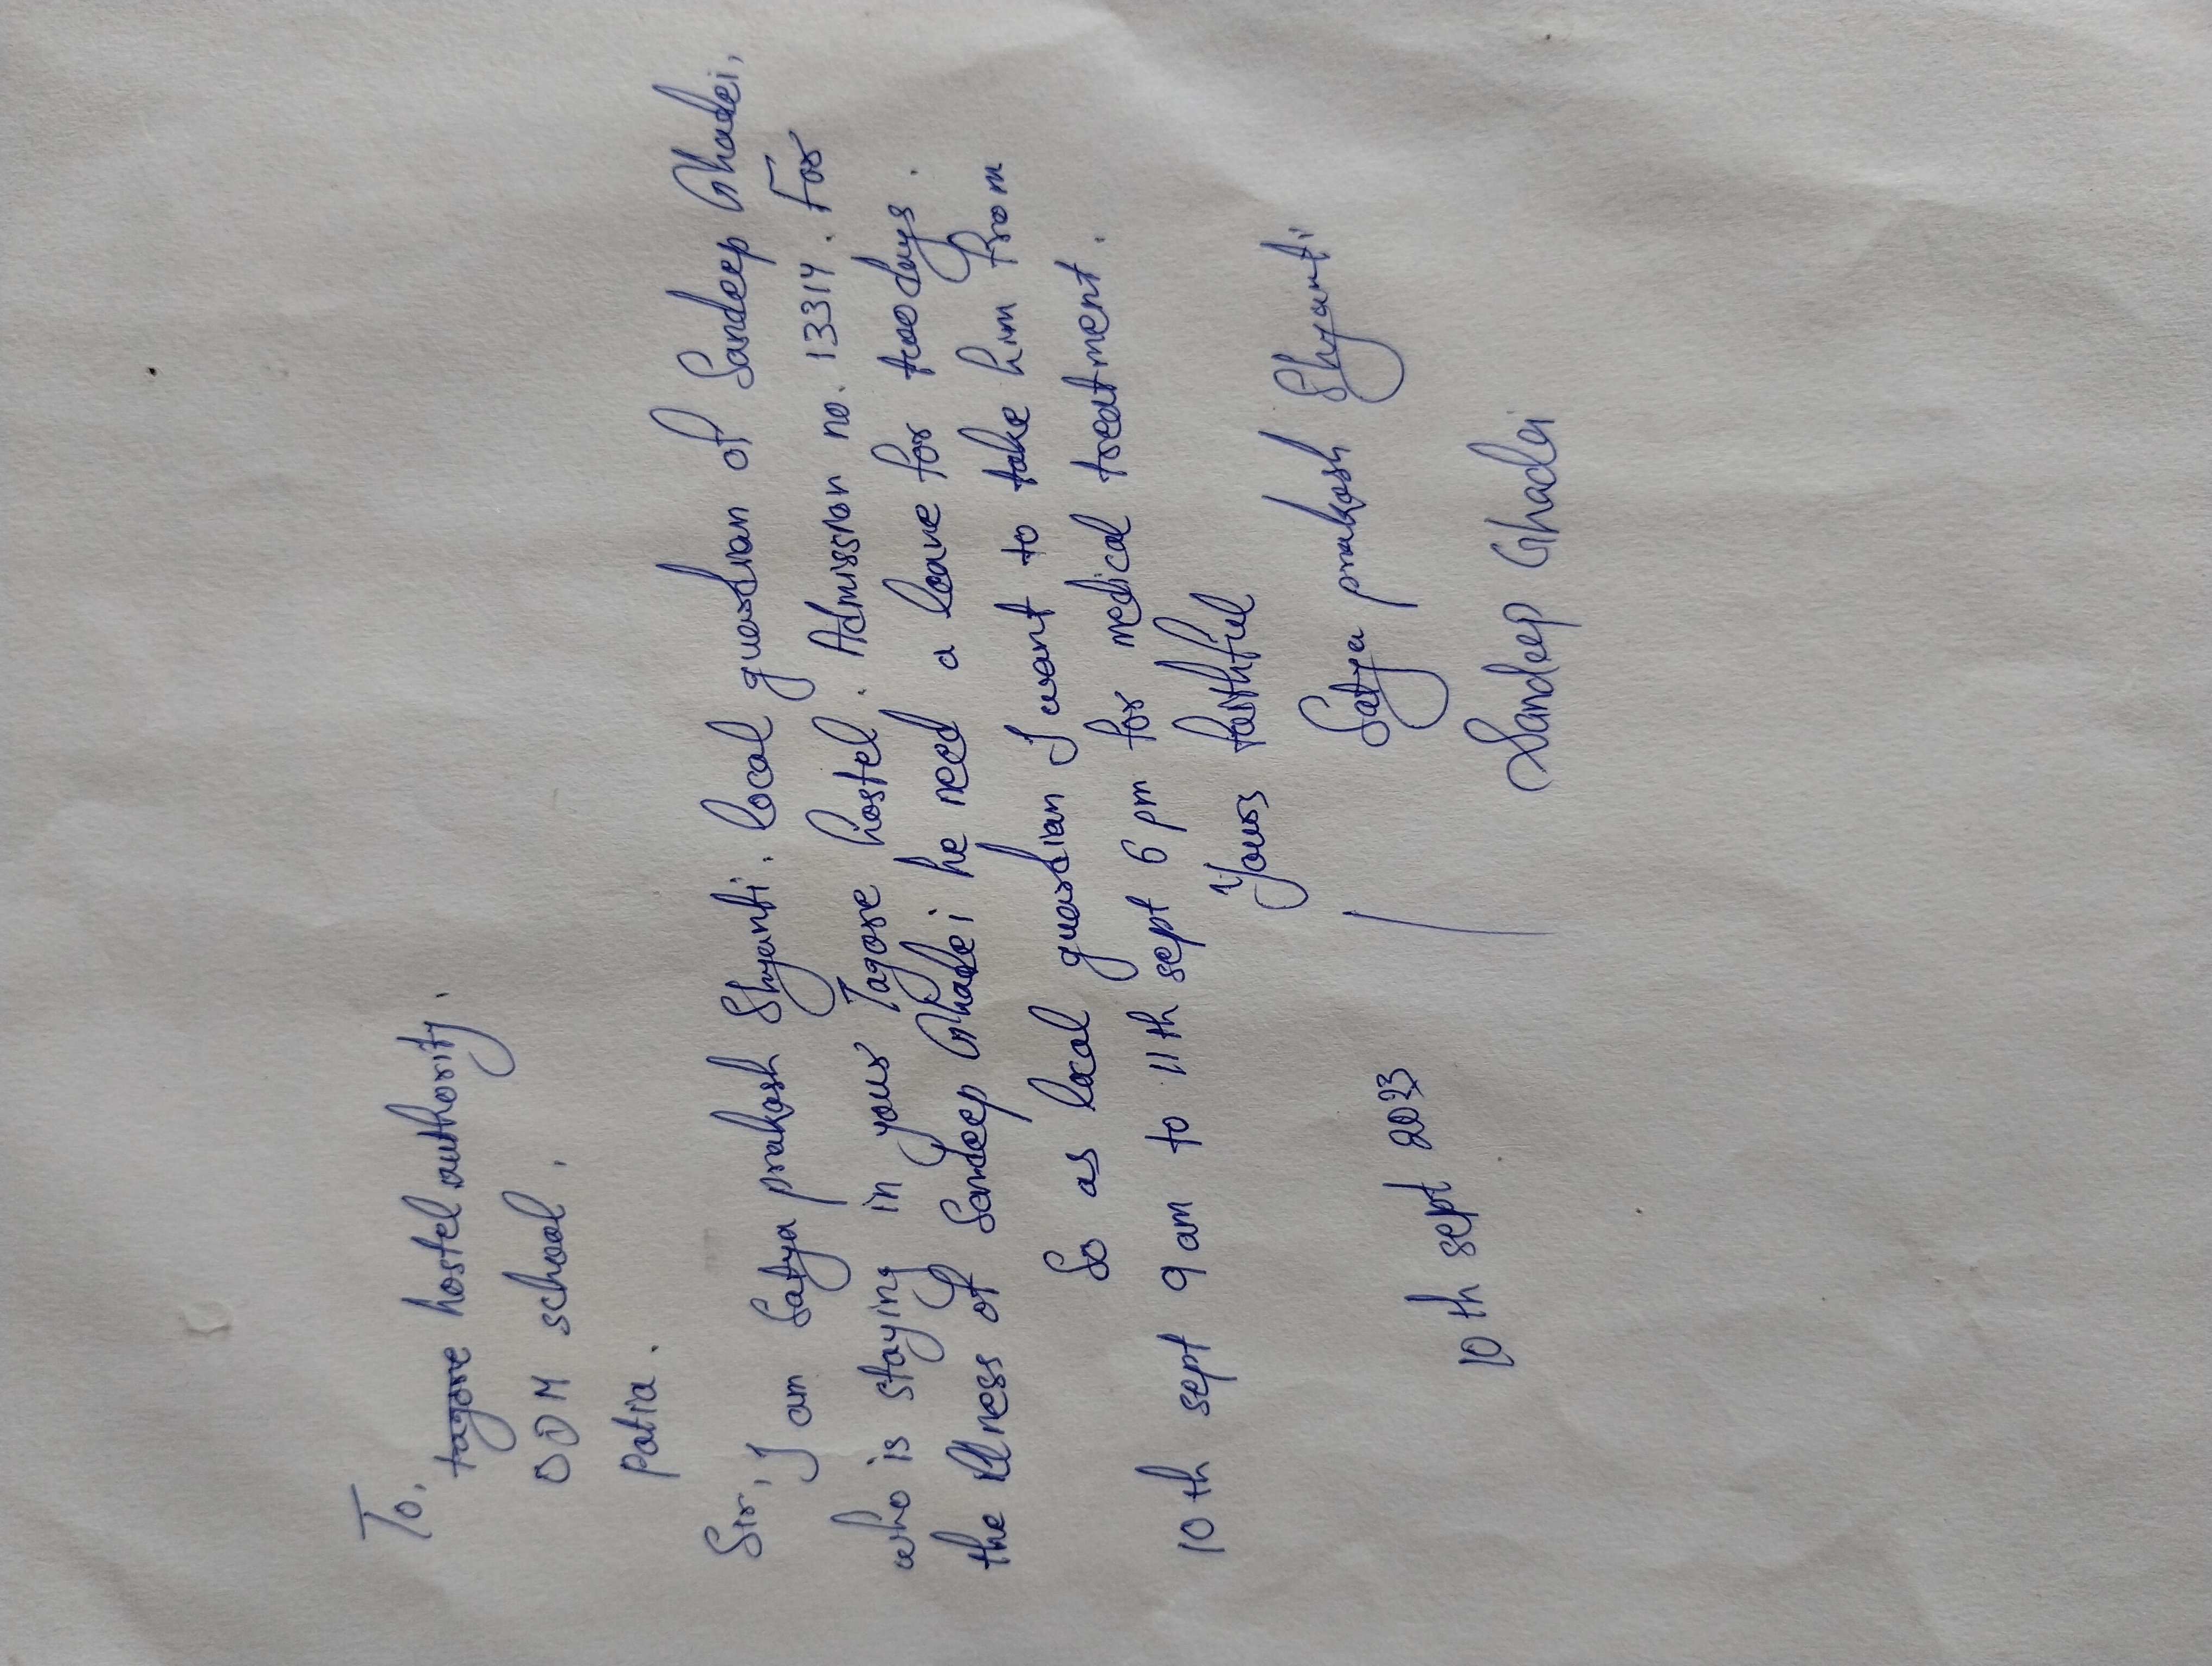 To,
tagore hostel authority.
ODM school,
Patia.
Sir, I am Satya prakash Shyanti. local guardian of Sandeep Ghadei,
who is staying in your Tagore hostel. Admission no. 13314. For
the illness of Sandeep Ghadei he need a leave for two days.
So as local guardian I want to take him from
10 th sept 9 am to 11 th sept 6 pm for medical treatment.
Yours faithful
Satya prakash Shyanti
Sandeep Ghadei
10 th sept 2023